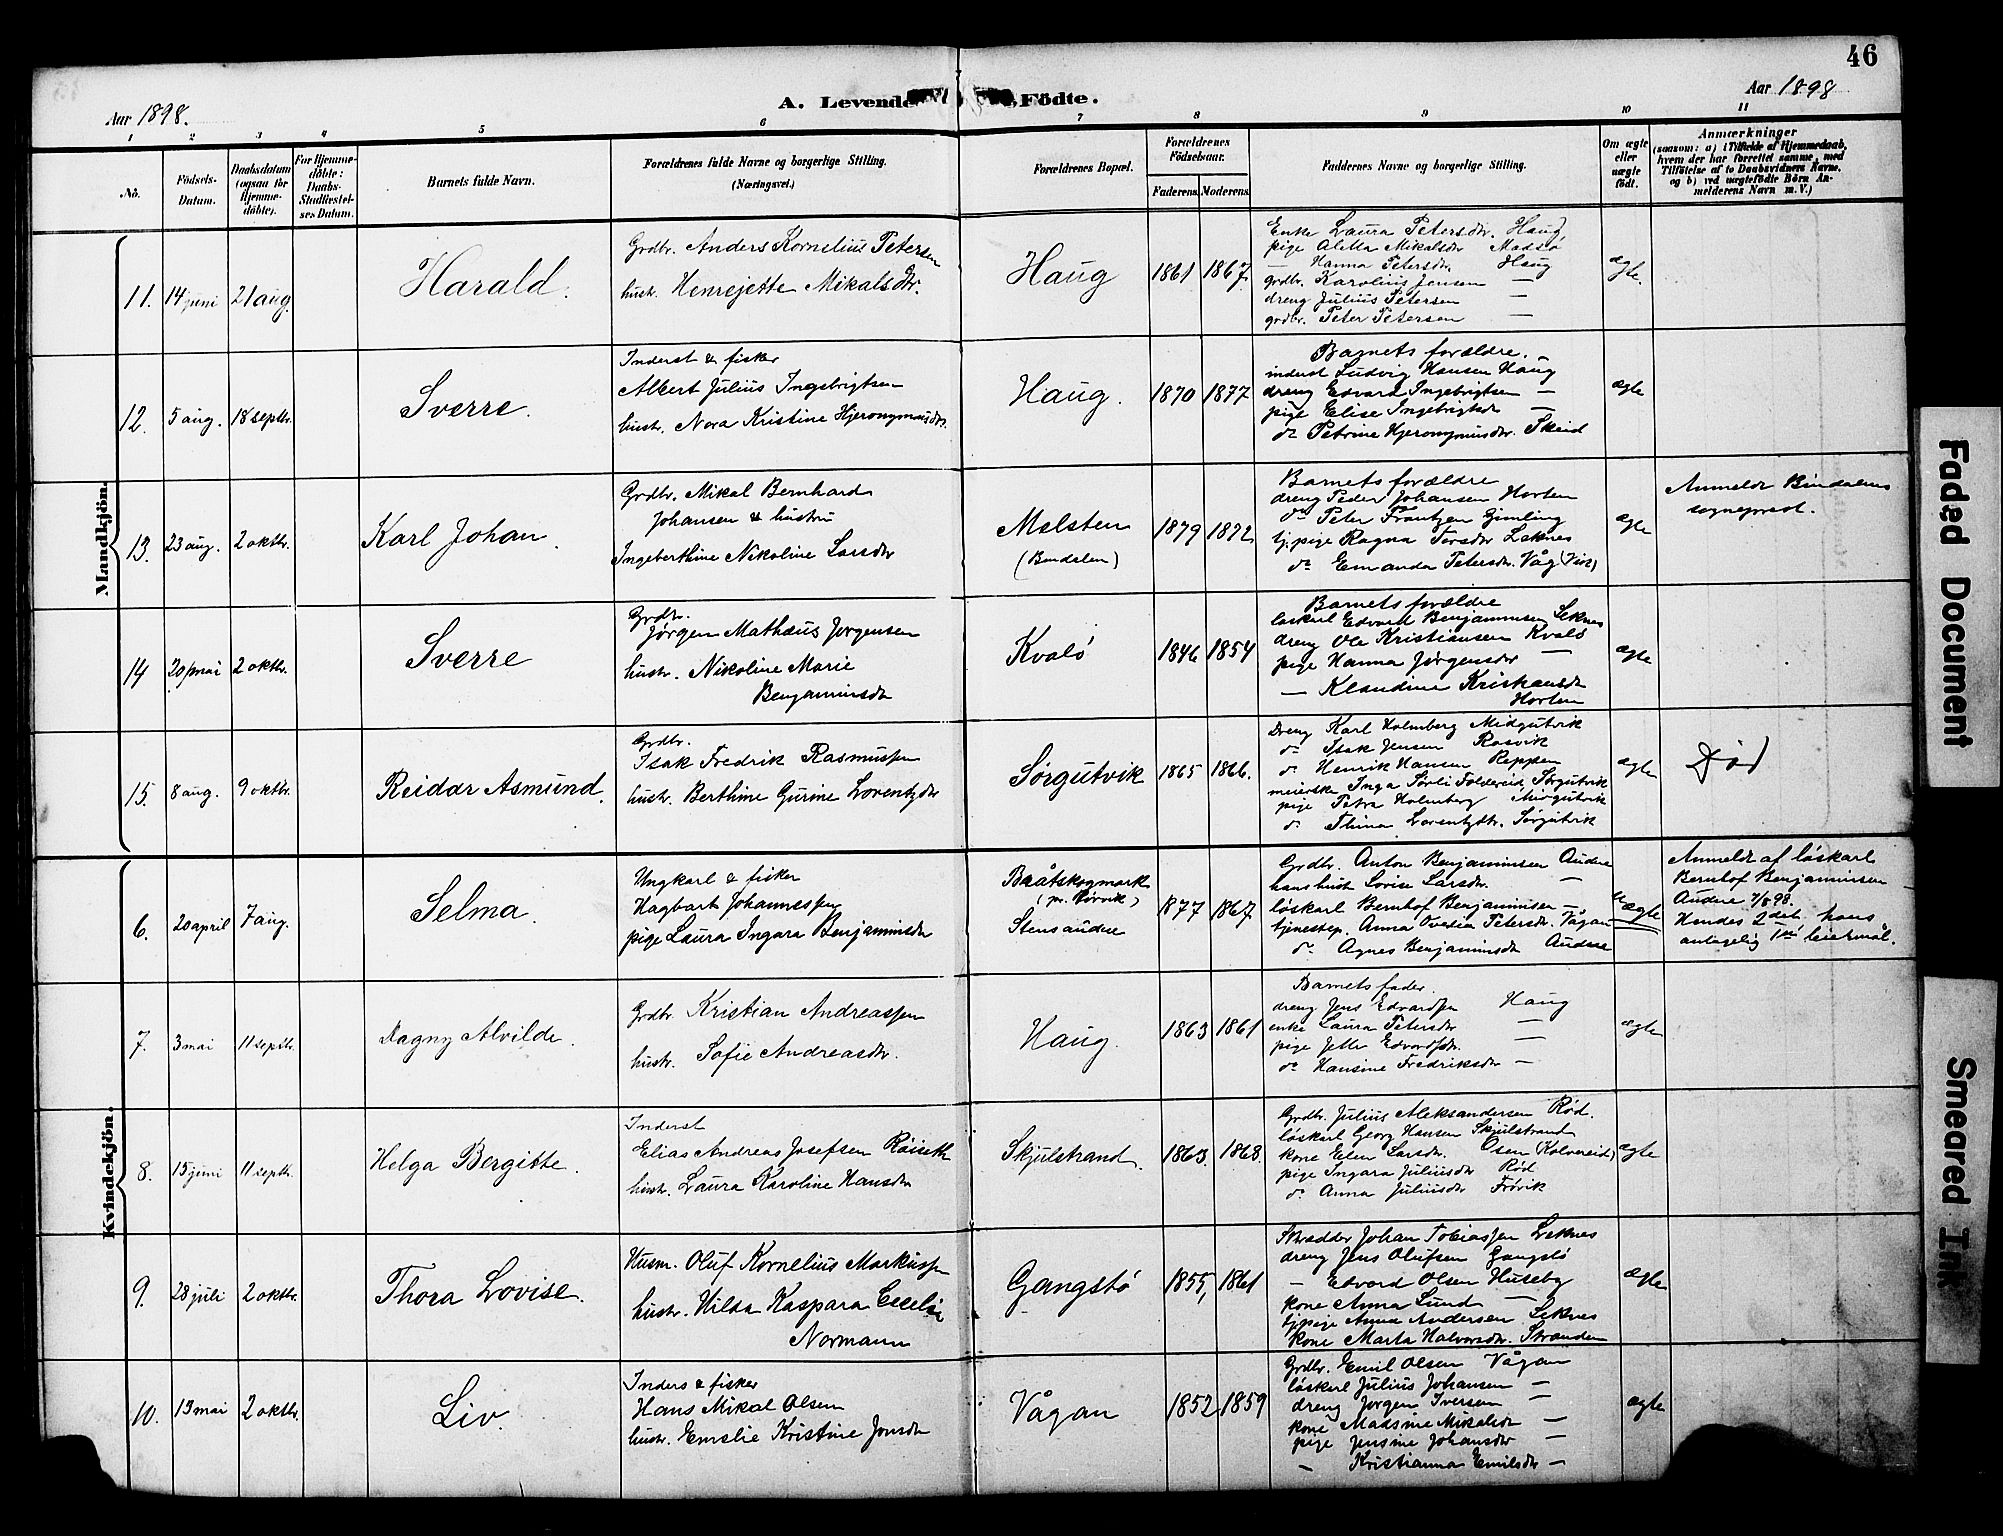 46
Aar 1898.
A. Levende Födte.
Aar 1898
1 2 3 4 5 6 7 8 9 10 11
No.
Födsels-Datum.
Daabsdatum (ogsaa for Hjemmedöbte).
For Hjemmedöbte: Daabs-Stadfæstelses Datum.
Barnets fulde Navn.
Forældrenes fulde Navne og borgerlige Stilling.
(Næringsvei.)
Forældrenes Bopæl.
Forældrenes Födselsaar.
Faderens. Moderens.
Faddernes Navne og borgerlige Stilling.
Om ægte eller uægte födt.
Anmærkninger
(saasom: a) i Tilfælde af Hjemmedaab, hvem der har forrettet samme, med Tilföielse af to Daabsvidners Navne, og b) ved uægtefödte Börn Anmelderens Navn m. V.)
Mandkjön.
11. 14 juni 21 aug.
Harald.
Grdbr. Anders Kornelius Petersen
hustr. Henrejette Mikalsdtr.
Haug 1861 1867
Enke Laura Petersdtr. Haug
pige Aletta Mikalsdtr Madsø
— Hanna Petersdtr. Haug
grdbr. Karolius Jensen —
dreng Julius Petersen —
grdbr. Peter Petersen —
ægte.
12. 5 aug. 18 septbr.
Sverre.
Inderst & fisker
Albert Julius Ingebrigtsen
hustr. Nora Kristine Hjeronymusdtr.
Haug. 1870 1877
Barnets forældre. —
inderst Ludvig Hansen Haug
dreng Edvard Ingebrigtsen —
pige Elise Ingebrigtsdtr —
do Petrine Hjeronymusdtr. Skeid
ægte
13. 23 aug. 2 oktbr.
Karl Johan.
Grdbr. Mikal Bernhard
Johansen & hustru
Ingeberthine Nikoline Larsdtr
Melsten
(Bindalen)
1879 1872
Barnets forældre
dreng Peder Johansen Horten
do Peter Frantzen Gimling
tj.pige Ragna Torsdtr Leknes
do Emanda Petersdtr. Våg
ægte
Anmeldt Bindalens
sogneprest.
14 20 mai 2 oktbr.
Sverre
Grdbr.
Jørgen Mathæus Jørgensen
hustr. Nikoline Marie
Benjaminsdtr
Kvalø 1846 1854
Barnets forældre
løskarl Edvard Benjaminsen Leknes
dreng Ole Kristiansen Kvalø
pige Hanna Jørgensdtr —
— Klaudine Kristiansdtr
Horten
ægte
15. 8 aug. 9 oktbr.
Reidar Asmund.
Grdbr.
Isak Fredrik Rasmussen
hustr. Berthine Gurine Lorentzdtr
Sørgutvik 1865 1866.
Dreng Karl Holmberg Midgutvik
do Isak Jensen Rosvik
do Henrik Hansen Reppen
meierske Inga Sørli Foldereid, Sørgutvik
pige Petra Holmberg Midgutvik
do Thina Lorentzdtr. Sørgutvik
ægte
Død
Kvindekjön.
6. 20 april 7 aug.
Selma.
Ungkarl & fisker
Hagbart Johannessen
pige Laura Ingara Benjaminsdtr
Baatskogmark
(pr. Rørvik)
Stensaudne
1877 1867
Grdbr. Anton Benjaminsen Audne
hans hustr Lovise Larsdtr. —
løskarl Bernhof Benjaminsen —
tjenestep. Anna Ovedia Petersdtr. Vågan
do Agnes Benjaminsdtr Audne
uægte
Anmeldt af løskarl
Bernhof Benjaminsen
Audne 7/8 98.
Hendes 2det, hans
antagelig 1ste leiermål.
7. 3 mai 11 septbr.
Dagny Alvilde.
Grdbr. Kristian Andreassen
hustr. Sofie Andreasdtr.
Haug. 1863 1861
Barnets fader.
dreng Jens Edvardsen Haug
enke Laura Petersdtr —
pige Jette Edvardsdtr. —
do Hansine Fredriksdtr —
ægte
8. 15 juni 11 septbr.
Helga Bergitte.
Inderst
Elias Andreas Josefsen Røiseth
hustr. Laura Karoline Hansdtr
Skjulstrand. 1863. 1868.
Grdbr. Julius Aleksandersen Rød.
løskarl Georg Hansen Skjulstrand
kone Elen Larsdtr. Olsen (Kolvereid)
pige Ingara Juliusdtr Rød
do Anna Juliusdtr Frøvik
ægte
9. 28 juli 2 oktbr.
Thora Lovise.
Husm. Oluf Kornelius Markussen
hustr. Hilda Kaspara Cecelie
Normann
Gangstø 1855, 1861
Skrædder Johan Tobiassen Leknes
dreng Jens Olufsen Gangstø
— Edvard Olsen Huseby
kone Anna Lund —
tj.pige Anna Andersen Leknes
kone Marta Halvorsdtr. Stranden
ægte
10. 13 mai 2 oktbr.
Liv.
Inders & fisker
Hans Mikal Olsen
hustr. Emelie Kristine Jonsdtr
Vågan 1852 1859
Grdbr. Emil Olsen Vågan
løskarl Julius Johansen —
dreng Jørgen Iversen —
kone Madsine Mikalsdtr —
pige Jensine Johansdtr —
— Kristianna Emilsdtr —
ægte
Faded Document
Smeared Ink